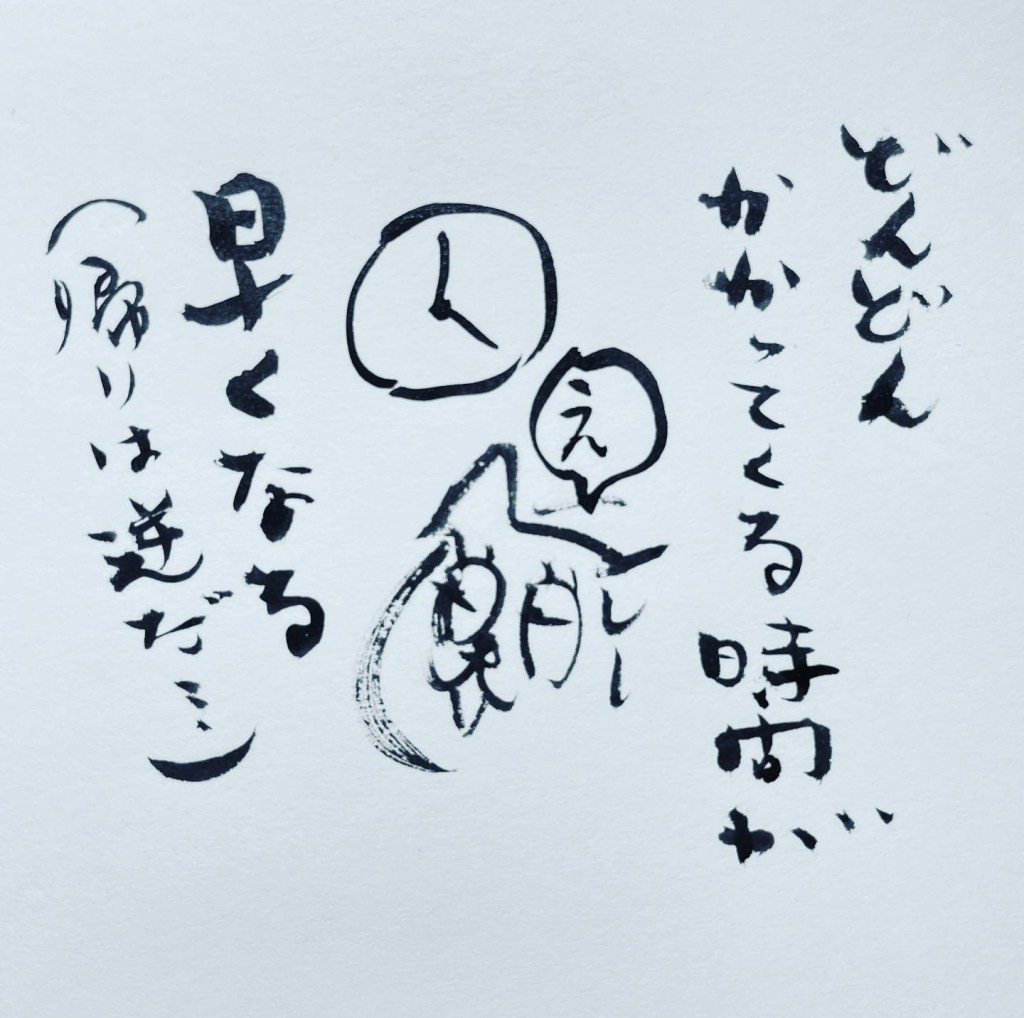 どんどん
かかってくる時間が
え
早くなる
(帰りは逆だ…)